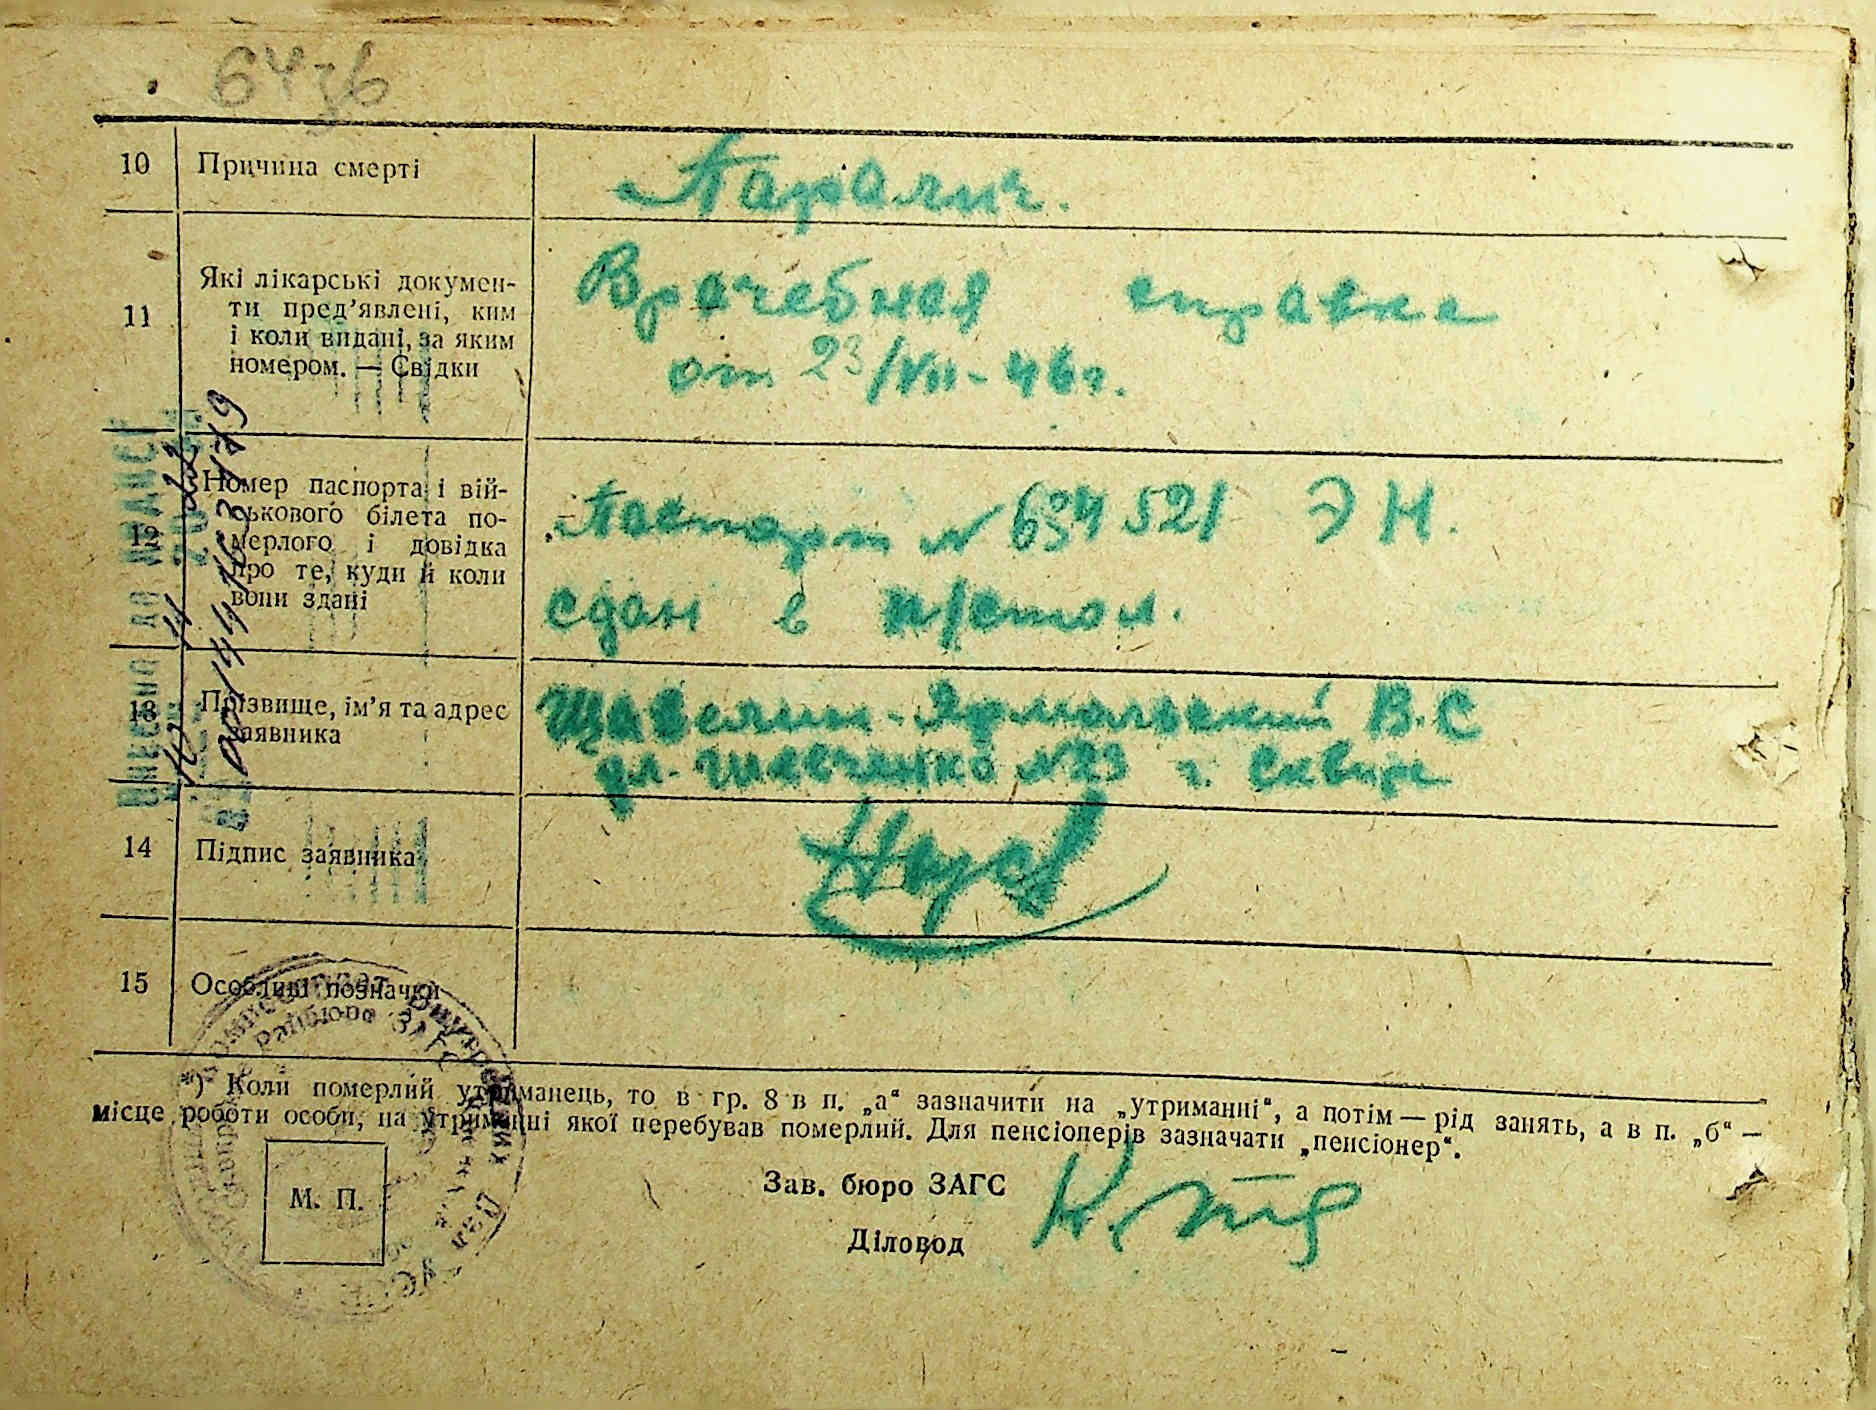 64зв
10 Причина смерті Паралич.
11 Які лікарські докумен-
ти пред’явлені, ким
і коли видані, за яким
номером. — Свідки
Врачебная справка
от 23/VII-46г.
12 Номер паспорта і вій-
ськового білета по-
мерлого і довідка
про те, куди й коли
вони здані
Паспорт № 634521 ЭН.
сдан в п/стол.
13 Прізвище, ім’я та адрес
заявника
Ярмольский В.С
ул. Шевченко №23 г. Сквира
14 Підпис заявника
15 Особливі позначки
*) Коли померлий утриманець, то в гр. 8 в п. „а“ зазначити на „утриманні“, а потім — рід занять, а в п. „б“ —
місце роботи особи, на утриманні якої перебував померлий. Для пенсіонерів зазначати „пенсіонер“.
М. П.
Зав. бюро ЗАГС
Діловод
Райбюро ЗАГС